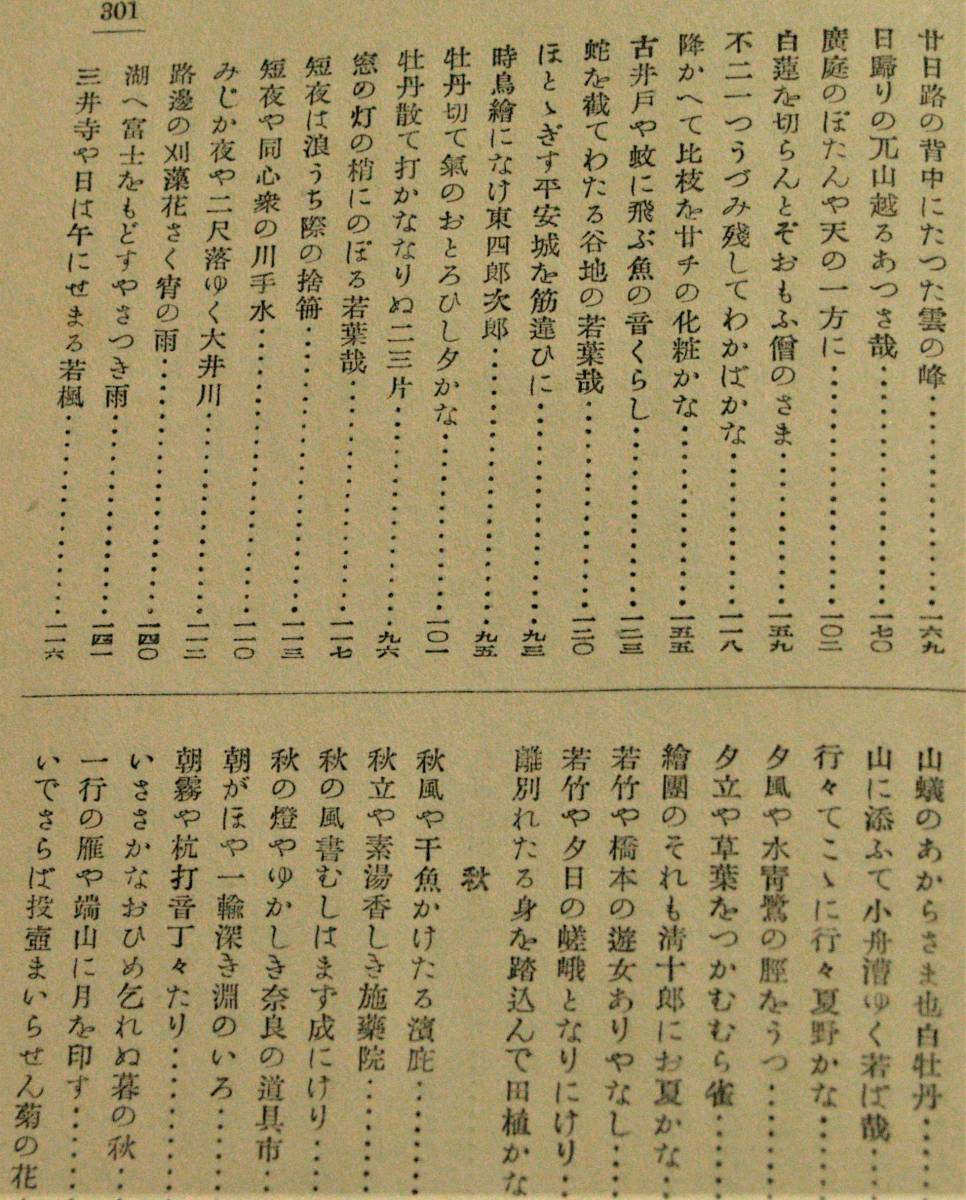 301
廿日路の背中にたつた雲の峰‥‥‥‥‥一六九
日歸りの兀山越るあつさ哉‥‥‥‥‥一七〇
廣庭のぼたんや天の一方に‥‥‥‥‥一〇二
白蓮を切らんとぞおもふ僧のさま‥‥‥‥‥一五九
不二一つうづみ殘してわかばかな‥‥‥‥‥一一八
降かへて比枝を廿チの化粧かな‥‥‥‥‥一五五
古井戸や蚊に飛ぶ魚の音くらし‥‥‥‥‥一二三
蛇を截てわたる谷地の若葉哉‥‥‥‥‥一二〇
ほとゝぎす平安城を筋違ひに‥‥‥‥‥九三
時鳥繪になけ東四郎次郎‥‥‥‥‥九五
牡丹切て氣のおとろひし夕かな‥‥‥‥‥一〇一
牡丹散て打かなりぬ二三片‥‥‥‥‥九六
窓の灯の梢にのぼる若葉哉‥‥‥‥‥一一七
短夜は浪うち際の捨篝‥‥‥‥‥一一三
短夜や同心衆の川手水‥‥‥‥‥一一〇
みじか夜や二尺落ゆく大井川‥‥‥‥‥一一二
路邊の刈藻花さく宵の雨‥‥‥‥‥一四〇
湖へ富士をもどすやさつき雨‥‥‥‥‥一四一
三井寺や日は午にせまる若楓‥‥‥‥‥一一六
山蟻のあからさま也白牡丹‥‥
山に添ふて小舟漕ゆく若ば哉‥‥
行々てこゝに行々夏野かな‥‥
夕風や水靑鷺の脛をうつ‥‥
夕立や草葉をつかむむら雀‥‥
繪團のそれも淸十郎にお夏かな‥‥
若竹や橋本の遊女ありやなし‥‥
若竹や夕日の嵯峨となりにけり‥‥
離別れたる身を踏込んで田植かな
秋
秋風や干魚かけたる濱庇‥‥
秋立や素湯香しき施藥院‥‥
秋の風書むしばまず成にけり‥‥
秋の燈やゆかしき奈良の道具市‥‥
朝がほや一輪深き淵のいろ‥‥
朝霧や杭打音丁々たり‥‥
いささかなおひめ乞れぬ暮の秋‥‥
一行の雁や端山に月を印す‥‥
いでさらば投壺まいらせん菊の花‥